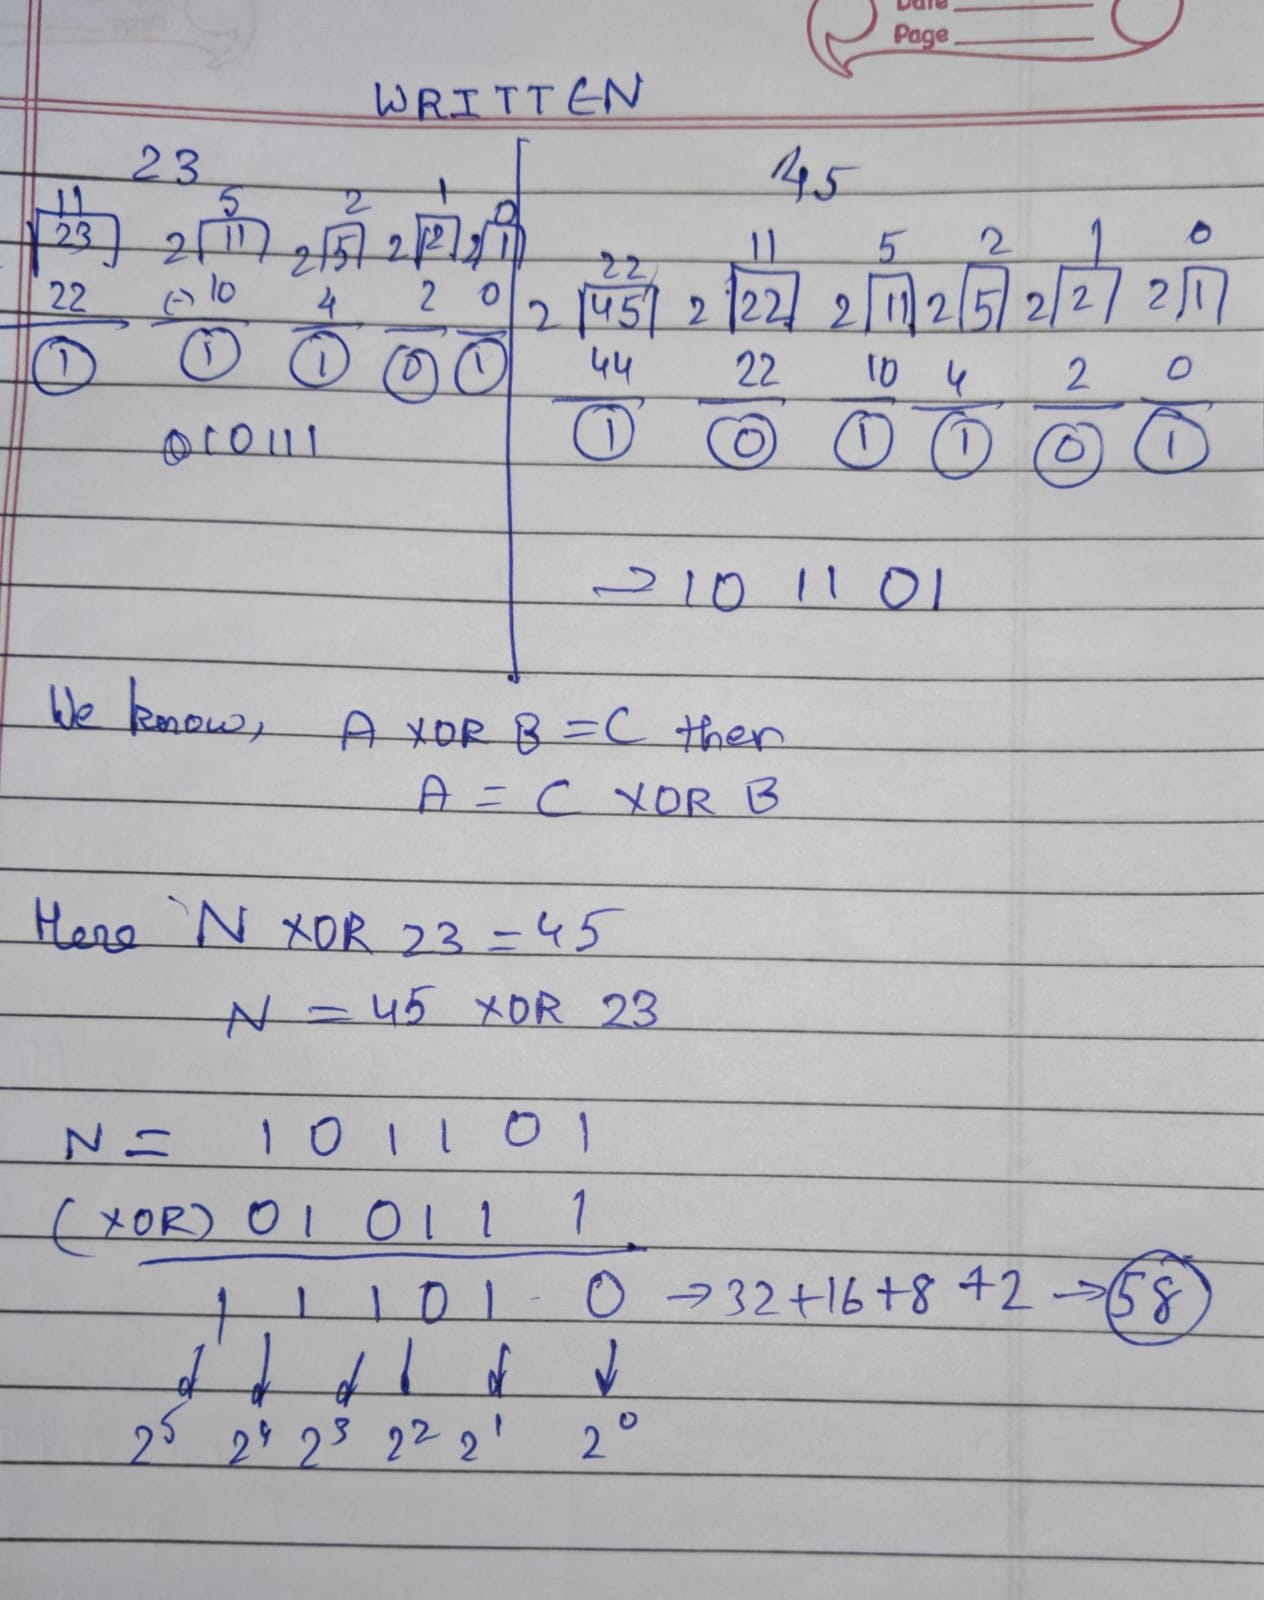 Date
Page
WRITTEN
23
45
11 5 2 1 0
23 2 11 2 5 2 2 2 1
22 (-) 10 4 2 0
1 1 1 0 1
010111
22 11 5 2 1 0
2 45 2 22 2 11 2 5 2 2 2 1
44 22 10 4 2 0
1 0 1 1 0 1
→ 10 11 01
We know, A XOR B = C then
A = C XOR B
Here N XOR 23 = 45
N = 45 XOR 23
N = 1 0 1 1 0 1
(XOR) 0 1 0 1 1 1
1 1 1 0 1 0 → 32 + 16 + 8 + 2 → 58
↓ ↓ ↓ ↓ ↓ ↓
2⁵ 2⁴ 2³ 2² 2¹ 2⁰